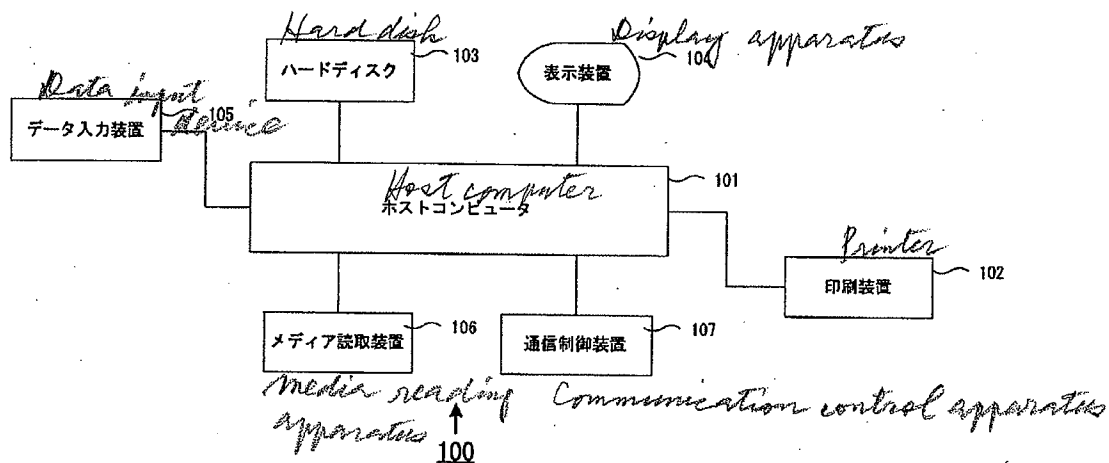 Hard disk
ハードディスク
103
Display apparatus
104
表示装置
Data input
device
105
データ入力装置
Host computer
ホストコンピュータ
101
Printer
印刷装置
102
メディア読取装置
106
通信制御装置
107
media reading
apparatus
Communication control apparatus
100